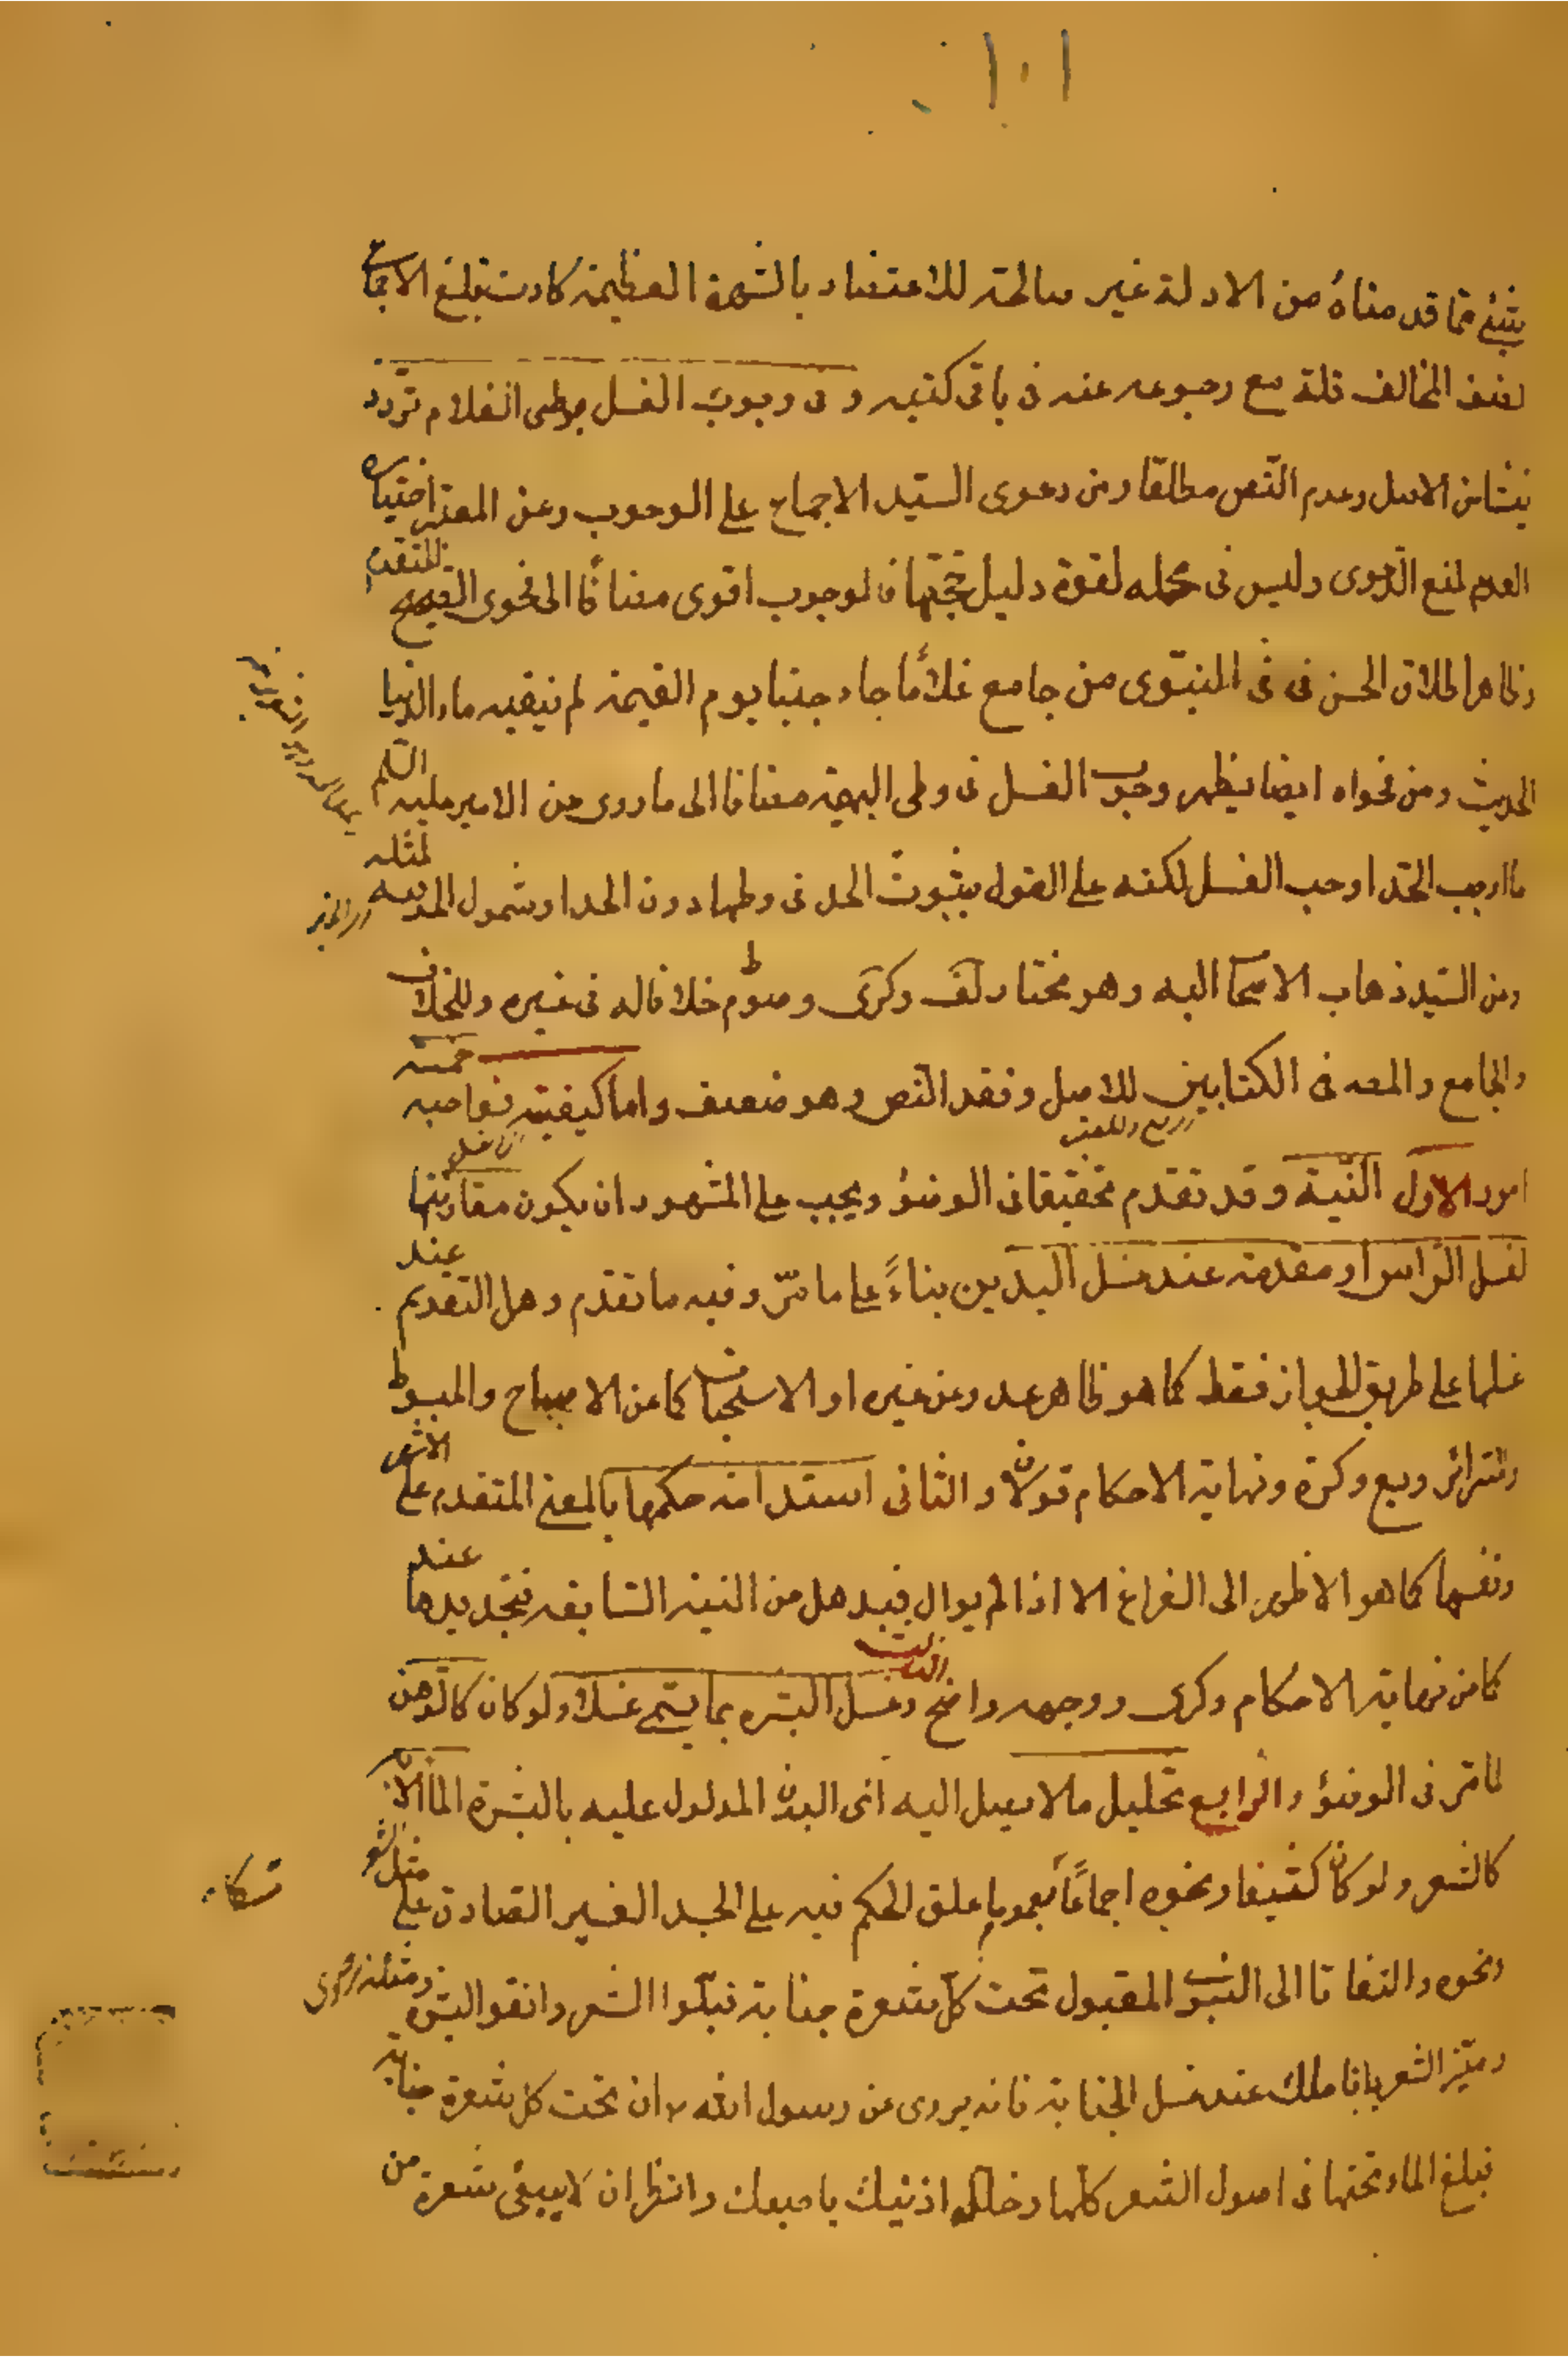 ١٠١
بشئ مما قدمناه من الادلة غير صالحة للاعتضاد بالشهرة العظيمة كادت تبلغ الاجماع
لضعف المخالف قلة مع رجوعه عنه فى باقى كتبه وفى وجوب الغسل بوطى الغلام تردد
ينشا من الاصل وعدم النّص مطلقا ومن دعوى السيّد الاجماع على الوجوب وعن المعتبر اختياره
العدم لمنع الدعوى وليس فى محله لقوة دليل حجيتها فالوجوب اقوى مضافًا الى فحوى الصحيح المتقدم
وظاهر اطلاق الحسن فى فى النبوى من جامع غلامًا جاء جنبا يوم القيمة لم ينقيه ماء الدنيا
الحديث ومن فحواه ايضا يظهر وجوب الغسل فى وطى البهيمة مضافا الى ما روى عن الامير عليه السلم
ما اوجب الحد اوجب الغسل لكنه على القول بثبوت الحد فى وطيها دون الحد او شمول الحد لمثله
وعن السيد ذهاب الاصحا اليه وهو مختار لف وكرى وصوم ط خلافا له فى غيره وللخلاف
والجامع والمعه فى الكتابين للاصل وفقد النص وهو ضعيف واما كيفيته فواجبه خمسة
امور الاول النّية وقد تقدم تحقيقها فى الوضوء ويجب على المشهور ان يكون مقارنتها
لغسل الراس او مقدمة عند غسل اليدين بناءً على ما مرّ وفيه ما تقدم وهل التقديم عند
غسلها على طريق الجواز فقط كما هو ظاهر عد وعن غيره او الاستحباب كما عن الاصباح والمبسوط
والسرائر ويع وكرة ونهاية الاحكام قولان والثانى استدامة حكمها بالمعنى المتقدم على الاشهر
ونفسها كما هو الاظهر الى الفراغ الا اذا لم يوال فيذهل من النية السابقه فيجديدها عند
كما عن نهاية الاحكام وكرى ووجهه واضح الثالث وغسل البشره بما يسمى غسلا ولو كان كالدهن
لما مر فى الوضوء والرابع تخليل ما لا يصل اليه اى البدن المدلول عليه بالبشرة الماء الا به
كالشعر ولو كان كثيفا ونحوه اجماعًا بعموم ما علق الحكم فيه على الجسد الغير الصادق على مثل الشعر
ونحوه والتفاتا الى النبوى المقبول تحت كل شعرة جنابة فبلّوا الشعر وانقوا البشره
وميّز الشعر باناملك عند غسل الجنابة فانه يروى عن رسول الله ص ان تحت كل شعرة جنابة
فبلغ الماء تحتها فى اصول الشعر كلها وخلل اذنيك باصبعك وانظر ان لا يبقى شعرة من